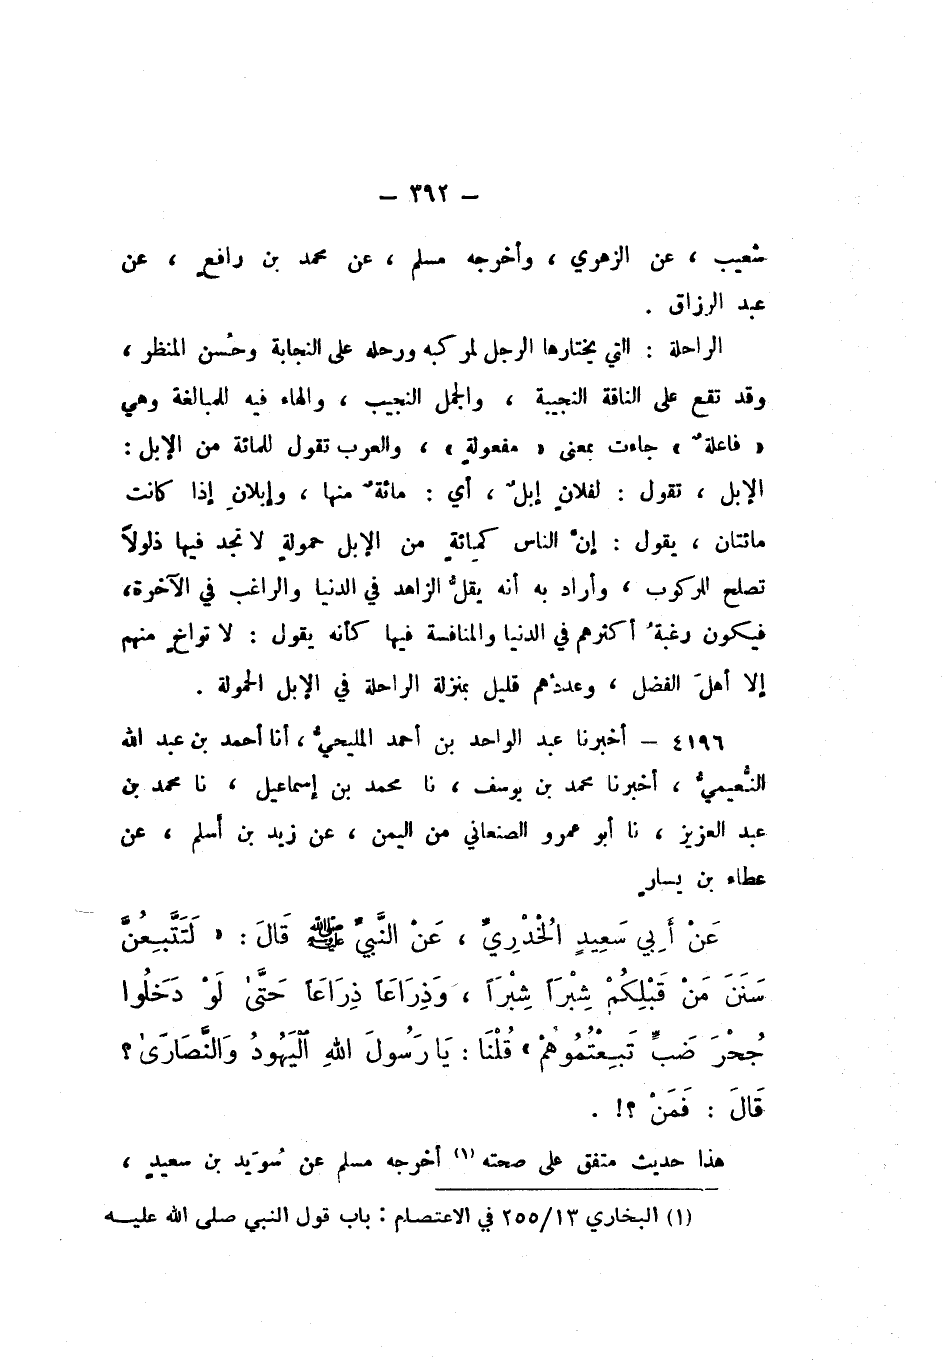 – ٣٩٢ –
شعيب ، عن الزهري ، وأخرجه مسلم ، عن محمد بن رافعٍ ، عن
عبد الرزاق .
الراحلة : التي يختارها الرجل لمركبه ورحله على النجابة وحُسن المنظر ،
وقد تقع على الناقة النجيبة ، والجمل النجيب ، والهاء فيه للمبالغة وهي
« فاعلةٌ » جاءت بمعنى « مفعولةٍ » ، والعرب تقول للمائة من الإبل :
الإبل ، تقول : لفلانٍ إبلٌ ، أي : مائةٌ منها ، وإبلانِ إذا كانت
مائتان ، يقول : إنَّ الناس كمائةٍ من الإبل حمولةٍ لا تجد فيها ذلولاً
تصلح للركوب ، وأراد به أنه يقلُّ الزاهد في الدنيا والراغب في الآخرة،
فيكون رغبةُ أكثرهم في الدنيا والمنافسة فيها كأنه يقول : لا تواخِ منهم
إلا أهلَ الفضل ، وعددُهم قليل بمنزلة الراحلة في الإبل الحمولة .
٤١٩٦ – أخبرنا عبد الواحد بن أحمد المليحيُّ ، أنا أحمد بن عبد الله
النُّعيميُّ ، أخبرنا محمد بن يوسف ، نا محمد بن إسماعيل ، نا محمد بن
عبد العزيز ، نا أبو عمرو الصنعاني من اليمن ، عن زيد بن أسلم ، عن
عطاء بن يسارٍ
عَنْ أَبِي سَعِيدٍ الْخُدْرِيِّ ، عَنْ النَّبِيِّ ﷺ قَالَ : « لَتَتَّبِعُنَّ
سَنَنَ مَنْ قَبْلِكُمْ شِبْرَاً شِبْرَاً ، وَذِرَاعَاً ذِرَاعَاً حَتَّىٰ لَوْ دَخَلُوا
جُحْرَ ضَبٍّ تَبِعْتُمُوهُمْ » قُلْنَا : يَا رَسُولَ اللهِ الْيَهُودُ وَالنَّصَارَىٰ ؟
قَالَ : فَمَنْ ؟! .
هذا حديث متفق على صحته (١) أخرجه مسلم عن سُوَيد بن سعيدٍ ،
(١) البخاري ١٣/٢٥٥ في الاعتصام : باب قول النبي صلى الله عليـــه